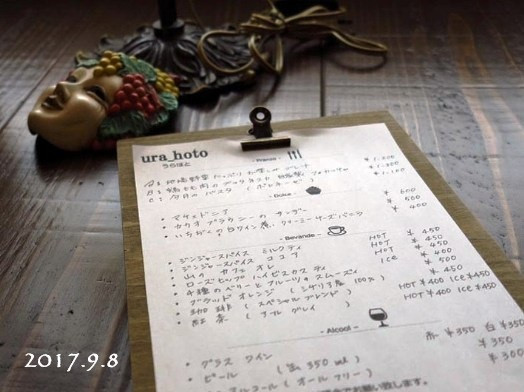 ura_hoto
うらほと
- Pranzo -
A: 地場野菜 ¥1,200
B: ¥1,200
C: 今日の パスタ (ボロネーゼ) ¥1,000
- Dolce -
・マチェドニア ¥600
・カカオ ブラウニー ¥500
・いちぢくの白ワイン煮、クリーミーチーズ ¥400
- Bevande -
・ジンジャースパイス ミルクティ HOT ¥450
・ジンジャースパイス ココア HOT ¥450
・山の カフェ オレ HOT ¥400
・ローズヒップ ハイビスカス ティ HOT ¥450
・ベリーとブルーツの スムージィ ICE ¥500
・ブラッド オレンジ (シチリア産 100%) ICE
・珈琲 (スペシャル ブレンド) HOT ¥400 ICE ¥450
・紅茶 (アール グレイ) HOT ¥400 ICE ¥450
- Alcool -
・グラス ワイン 赤 ¥350 白 ¥350
・ビール (缶 350 ml) ¥350
アルコール (オール フリー) ¥300
2017.9.8